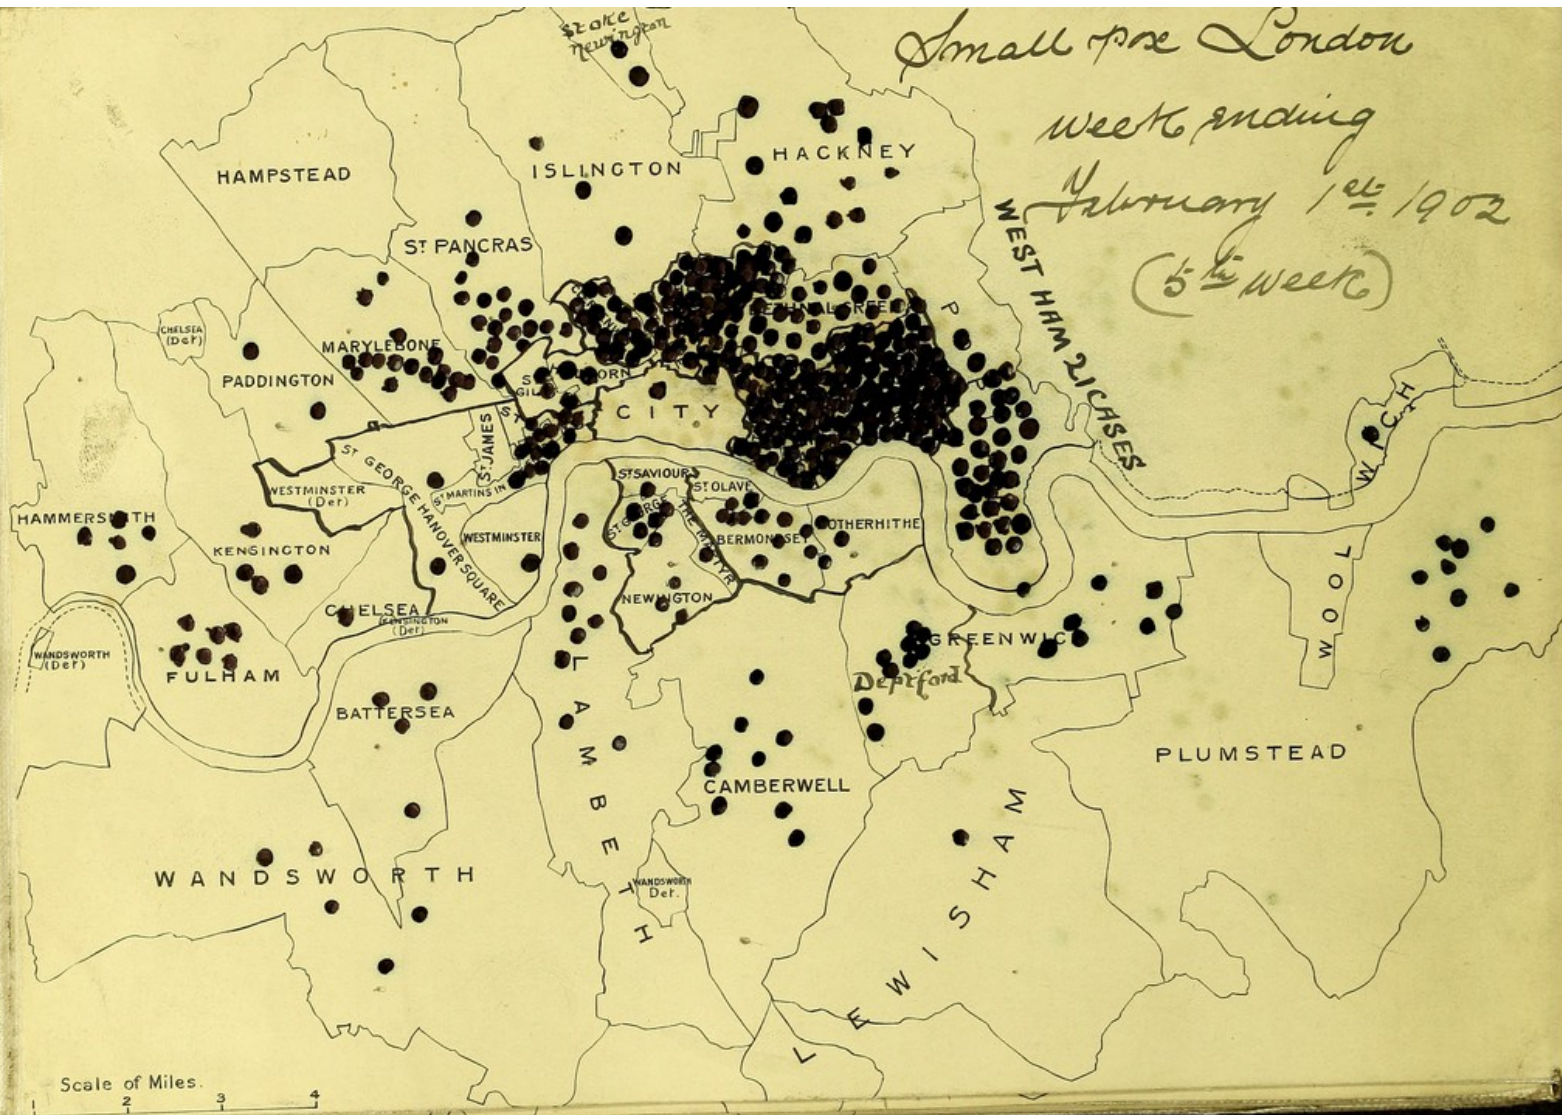 Small pox London
week ending
February 1st 1902
(5th week)
Stoke
Newington
HACKNEY
ISLINGTON
HAMPSTEAD
ST PANCRAS
WEST HAM 21 CASES
BETHNAL GREEN
P
CHELSEA
(Det)
MARYLEBONE
PADDINGTON
ST GILES
HOLBORN
CITY
ST JAMES
ST GEORGE HANOVER SQUARE
ST MARTINS IN
WESTMINSTER
(Det)
WESTMINSTER
ST SAVIOUR
ST OLAVE
ST GEORGE THE MARTYR
BERMONDSEY
ROTHERHITHE
NEWINGTON
HAMMERSMITH
KENSINGTON
CHELSEA
KENSINGTON
(Det)
WANDSWORTH
(Det)
FULHAM
BATTERSEA
GREENWIC
Deptford
WOOL
WICH
LAMBETH
CAMBERWELL
PLUMSTEAD
LEWISHAM
WANDSWORTH
WANDSWORTH
Det.
Scale of Miles.
2 3 4